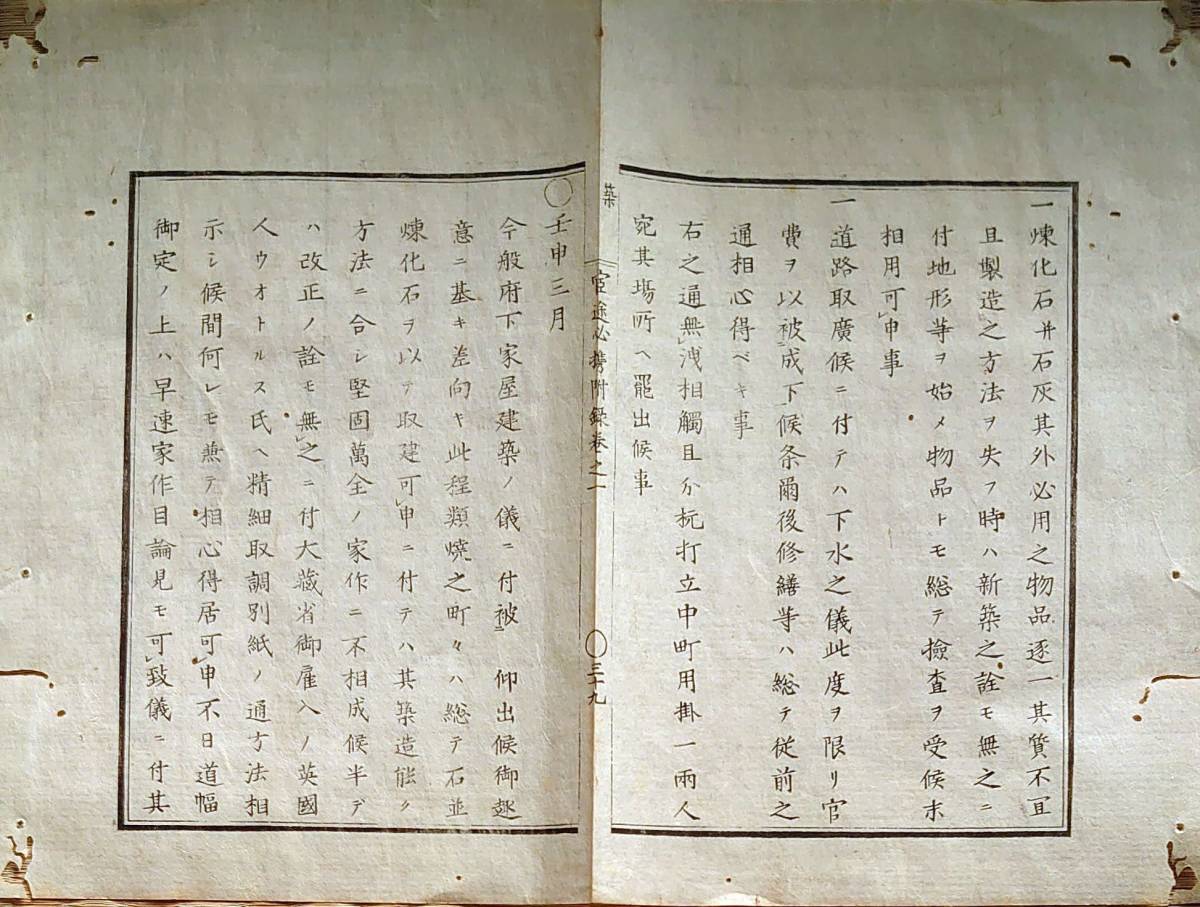 一煉化石并石灰其外必用之物品逐一其質不冝
且製造之方法ヲ失フ時ハ新築之詮モ無之ニ
付地形等ヲ始メ物品トモ総テ撿査ヲ受候末
相用可申事
一道路取廣候ニ付テハ下水之儀此度ヲ限リ官
費ヲ以被成下候条爾後修繕等ハ総テ従前之
通相心得ベキ事
右之通無洩相觸且分杭打立中町用掛一兩人
宛其場所ヘ罷出候事
築
官途必携附録巻之一
〇三十九
〇壬申三月
今般府下家屋建築ノ儀ニ付被 仰出候御趣
意ニ基キ差向キ此程類燒之町々ハ総テ石並
煉化石ヲ以テ取建可申ニ付テハ其築造能ク
方法ニ合シ堅固萬全ノ家作ニ不相成候半デ
ハ改正ノ詮モ無之ニ付大藏省御雇入ノ英國
人ウオトルス氏ヘ精細取調別紙ノ通方法相
示シ候間何レモ兼テ相心得居可申不日道幅
御定ノ上ハ早速家作目論見モ可致儀ニ付其